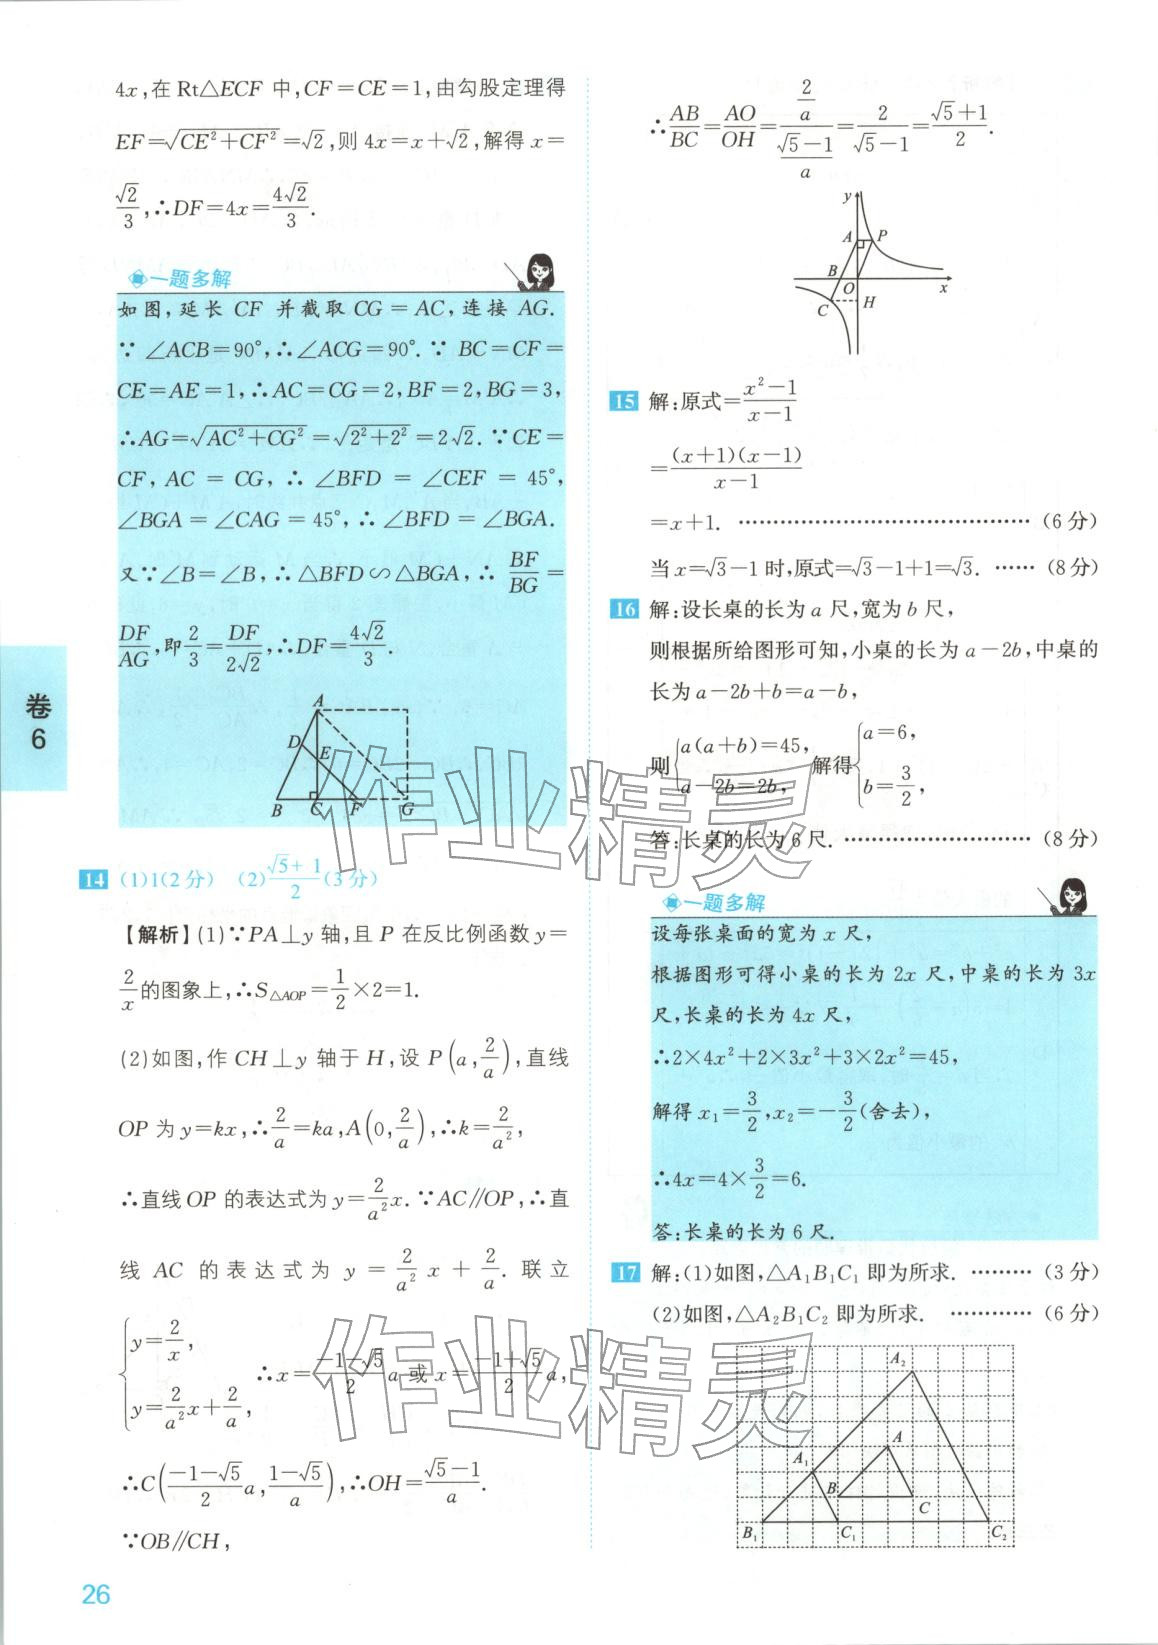 4x,在 Rt△ECF 中,CF=CE=1,由勾股定理得
EF=√(CE²+CF²)=√2,则 4x=x+√2,解得 x=
√2/3,∴DF=4x=4√2/3.
一题多解
如图,延长 CF 并截取 CG=AC,连接 AG.
∵∠ACB=90°,∴∠ACG=90°.∵BC=CF=
CE=AE=1,∴AC=CG=2,BF=2,BG=3,
∴AG=√(AC²+CG²)=√(2²+2²)=2√2.∵CE=
CF,AC=CG,∴∠BFD=∠CEF=45°,
∠BGA=∠CAG=45°,∴∠BFD=∠BGA.
又∵∠B=∠B,∴△BFD∽△BGA,∴BF/BG=
DF/AG,即2/3=DF/(2√2),∴DF=4√2/3.
A
D
E
B C F G
14 (1)1(2分) (2)(√5+1)/2(3分)
【解析】(1)∵PA⊥y 轴,且 P 在反比例函数 y=
2/x的图象上,∴S△AOP=1/2×2=1.
(2)如图,作 CH⊥y 轴于 H,设 P(a,2/a),直线
OP 为 y=kx,∴2/a=ka,A(0,2/a),∴k=2/a²,
∴直线 OP 的表达式为 y=2/a²x.∵AC∥OP,∴直
线 AC 的表达式为 y=2/a²x+2/a.联立
{y=2/x,
y=2/a²x+2/a,
∴x=(-1-√5)/2a 或 x=(-1+√5)/2a,
∴C((-1-√5)/2a,(1-√5)/a),∴OH=(√5-1)/a.
∵OB∥CH,
卷6
26
∴AB/BC=AO/OH=(2/a)/((√5-1)/a)=2/(√5-1)=(√5+1)/2.
y
A P
B O x
C H
15 解:原式=(x²-1)/(x-1)
=(x+1)(x-1)/(x-1)
=x+1. ……………………………… (6分)
当 x=√3-1 时,原式=√3-1+1=√3. …… (8分)
16 解:设长桌的长为 a 尺,宽为 b 尺,
则根据所给图形可知,小桌的长为 a-2b,中桌的
长为 a-2b+b=a-b,
则{a(a+b)=45, a-2b=2b, 解得{a=6, b=3/2,
答:长桌的长为 6 尺. …………………… (8分)
一题多解
设每张桌面的宽为 x 尺,
根据图形可得小桌的长为 2x 尺,中桌的长为 3x
尺,长桌的长为 4x 尺,
∴2×4x²+2×3x²+3×2x²=45,
解得 x₁=3/2,x₂=-3/2(舍去),
∴4x=4×3/2=6.
答:长桌的长为 6 尺.
17 解:(1)如图,△A₁B₁C₁ 即为所求. ……… (3分)
(2)如图,△A₂B₁C₂ 即为所求. ………… (6分)
A₂
A
A₁
B C
B₁ C₁ C₂
作业精灵
作业精灵